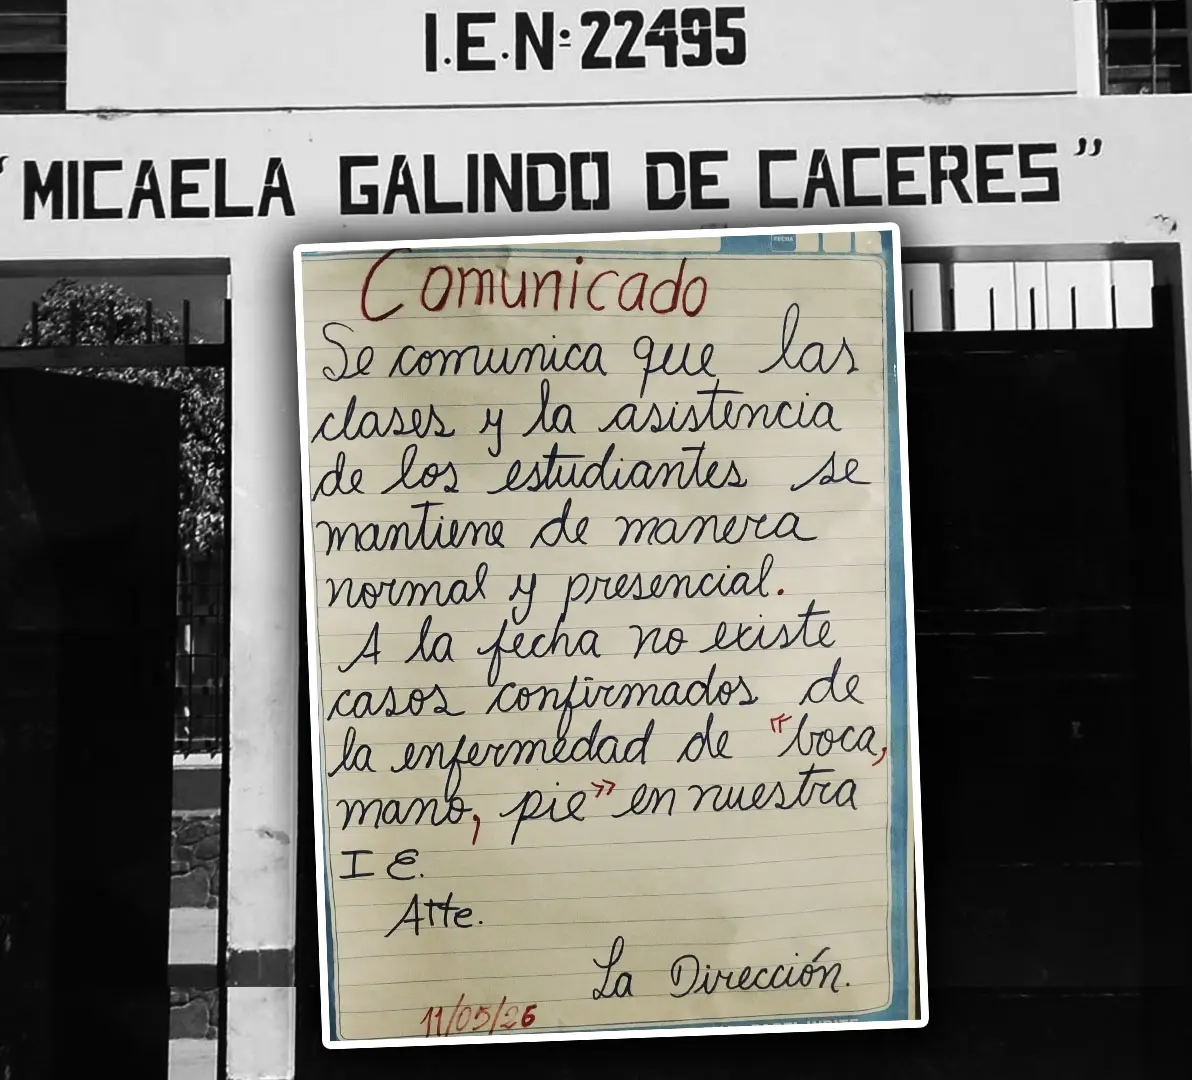 I.E.Nº 22495
"MICAELA GALINDO DE CACERES"
FECHA
Comunicado
Se comunica que las
clases y la asistencia
de los estudiantes se
mantiene de manera
normal y presencial.
A la fecha no existe
casos confirmados de
la enfermedad de "boca,
mano, pie" en nuestra
I E.
Atte.
La Dirección.
11/05/26